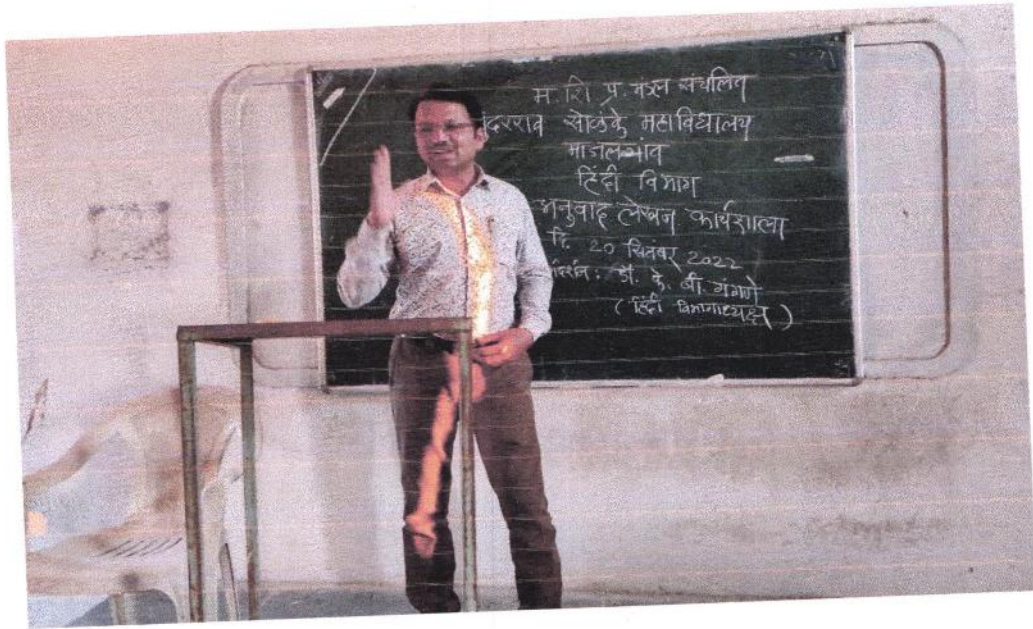 म. शि. प्र. मंडल संचलित
ंदरराव सोळंके महाविद्यालय
माजलगांव
हिंदी विभाग
अनुवाद लेखन कार्यशाला
दि. 20 सितंबर 2022
डॉ. के. बी. गंगणे
( हिंदी विभागाध्यक्ष )